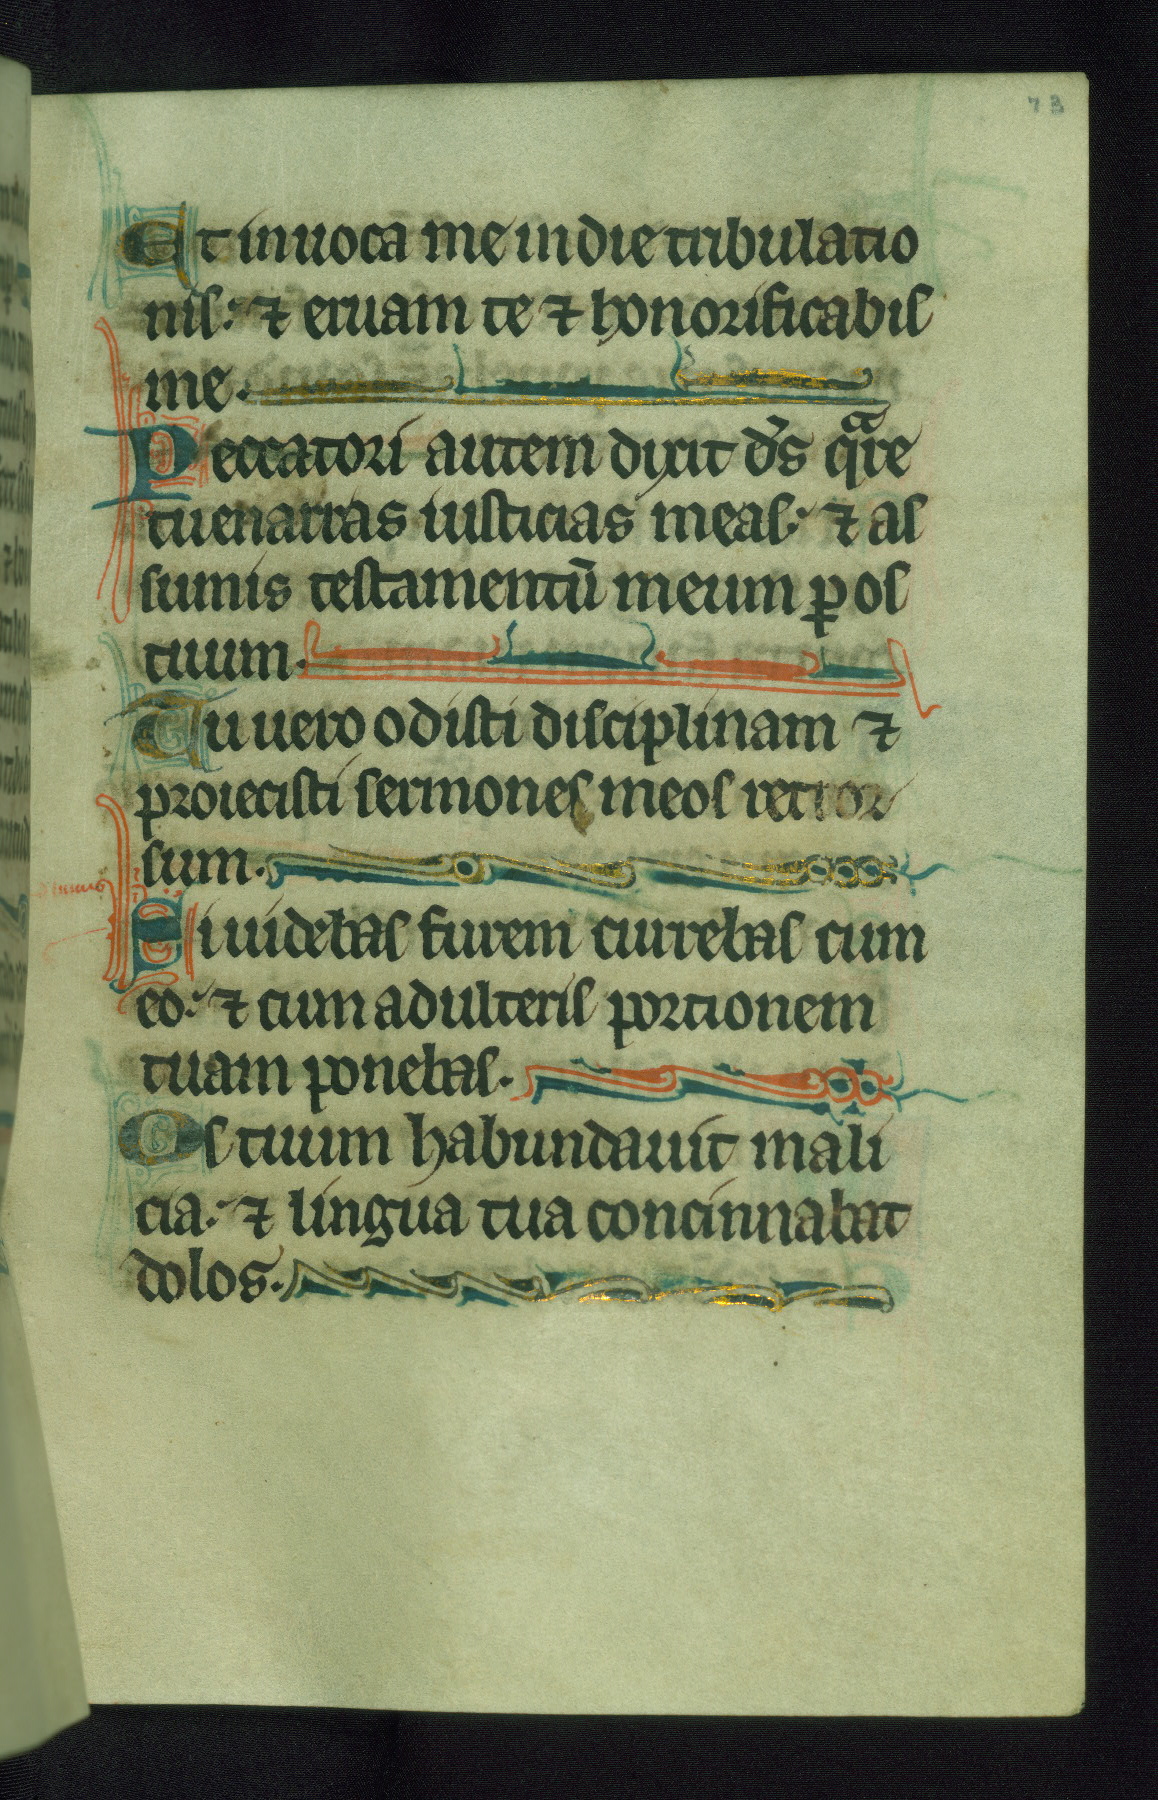 73
Et inuoca me in die tribulatio
nis: ⁊ eruam te ⁊ honorificabis
me.
Peccatori autem dixit d̄s qͣre
tu enarras iusticias meas: ⁊ as
sumis testamentū meum ꝑ os
tuum.
Tu uero odisti disciplinam ⁊
proiecisti sermones meos retror
sum.
Si uidebas furem currebas cum
eo: ⁊ cum adulteris portionem
tuam ponebas.
Os tuum habundauit mali
cia: ⁊ lingua tua concinnabat
dolos.